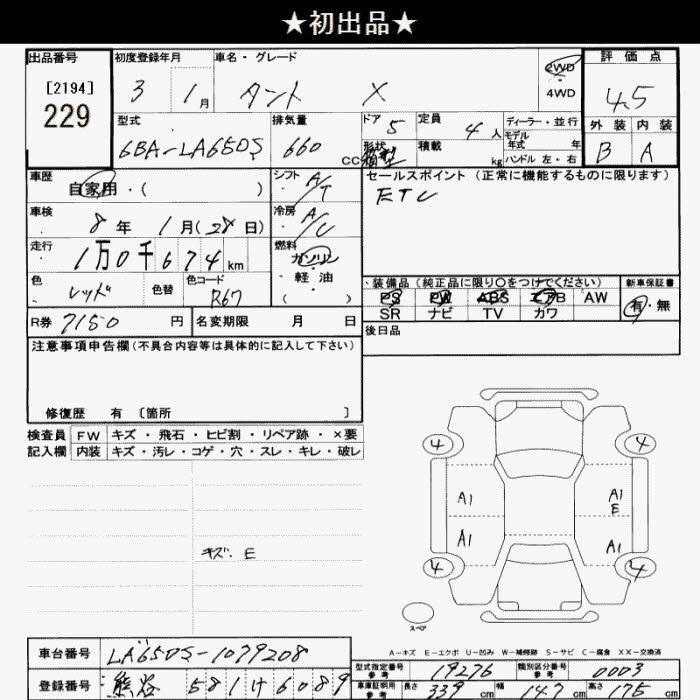 ★初出品★
出品番号 初度登録年月 車名・グレード 2WD 評価点
[2194] 3 1月 タント X 4WD 4.5
229 型式 排気量 ドア 5 定員 4人 ディーラー・並行 外装 内装
6BA-LA650S 660 cc 形状 箱型 積載 kg モデル年式 年 ハンドル 左・右 B A
車歴 自家用・( ) シフト A/T セールスポイント (正常に機能するものに限ります)
車検 8年 1月(28日) 冷房 A/C ETC
走行 1万0千674km 燃料 ガソリン・軽・油・( )
色 レッド 色替 色コード R67
装備品 (純正品に限り〇をつけてください) 新車保証書
PS PW ABS エアB AW 有・無
SR ナビ TV カワ
R券 7150 円 名変期限 月 日 後日品
注意事項申告欄 (不具合内容等は具体的に記入して下さい)
修復歴 有 [箇所 ]
検査員 FW キズ・飛石・ヒビ割・リペア跡・×要
記入欄 内装 キズ・汚レ・コゲ・穴・スレ・キレ・破レ
4 4
A1 A1
E
A1 A1
キズ. E
4 4
スペア
A-キズ E-エクボ U-凹み W-補修跡 S-サビ C-腐食 XX-交換済
車台番号 LA650S-1079208
型式指定番号 参考 19276 類別区分番号 参考 0003
登録番号 熊谷 581 け 6089
車庫証明用 参考 長さ 339 cm 幅 147 cm 高さ 175 cm